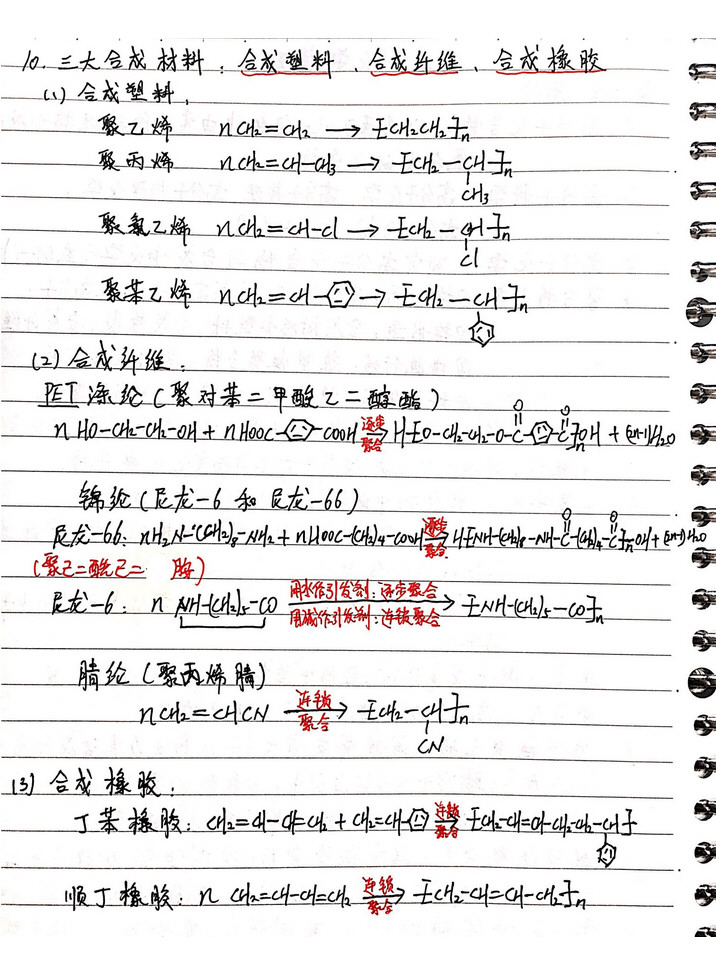 10. 三大合成材料：合成塑料、合成纤维、合成橡胶
(1) 合成塑料，
聚乙烯 nCH2=CH2 → [CH2CH2]n
聚丙烯 nCH2=CH-CH3 → [CH2-CH]n
CH3
聚氯乙烯 nCH2=CH-Cl → [CH2-CH]n
Cl
聚苯乙烯 nCH2=CH- → [CH2-CH]n
(2) 合成纤维：
PET 涤纶（聚对苯二甲酸乙二醇酯）
O O
n HO-CH2-CH2-OH + nHOOC- -COOH 逐步聚合 → H[O-CH2-CH2-O-C- -C]nOH + (2n-1)H2O
锦纶（尼龙-6 和尼龙-66）
O O
尼龙-66: nH2N-(CH2)8-NH2 + nHOOC-(CH2)4-COOH 逐步聚合 → H[NH-(CH2)8-NH-C-(CH2)4-C]nOH + (2n-1)H2O
(聚己二酰己二 胺)
尼龙-6: n NH-(CH2)5-CO 用水作引发剂:逐步聚合 用碱作引发剂:连锁聚合 → [NH-(CH2)5-CO]n
腈纶（聚丙烯腈）
nCH2=CHCN 连锁聚合 → [CH2-CH]n
CN
(3) 合成橡胶：
丁苯橡胶: CH2=CH-CH=CH2 + CH2=CH- 连锁聚合 → [CH2-CH=CH-CH2-CH2-CH]
顺丁橡胶: n CH2=CH-CH=CH2 连锁聚合 → [CH2-CH=CH-CH2]n